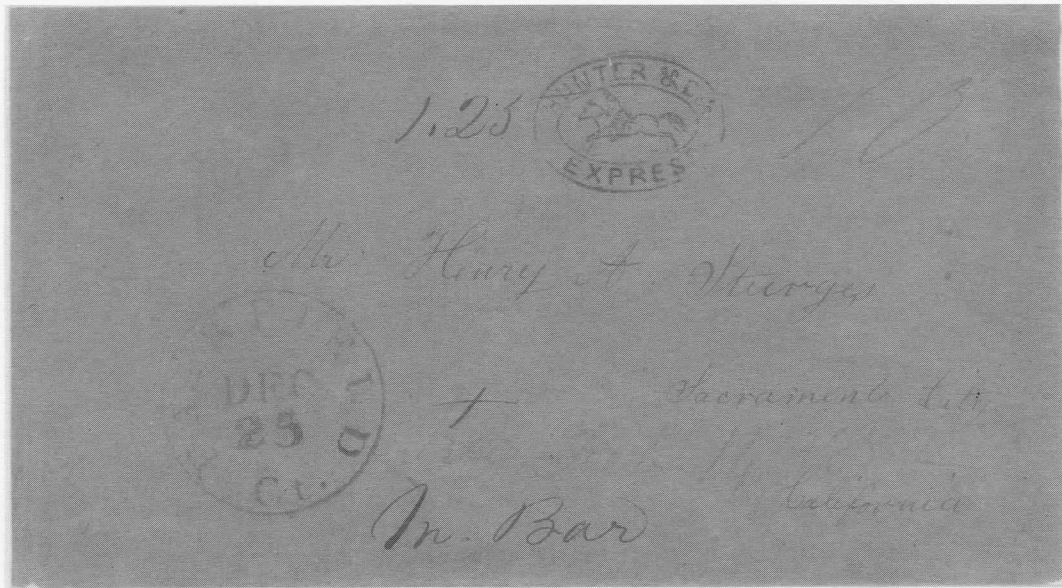 1.25
HUNTER & Co's
EXPRESS
10
Mr Henry A. Sturges
DEC
25
Ct.
Sacramento City
California
M. Bar